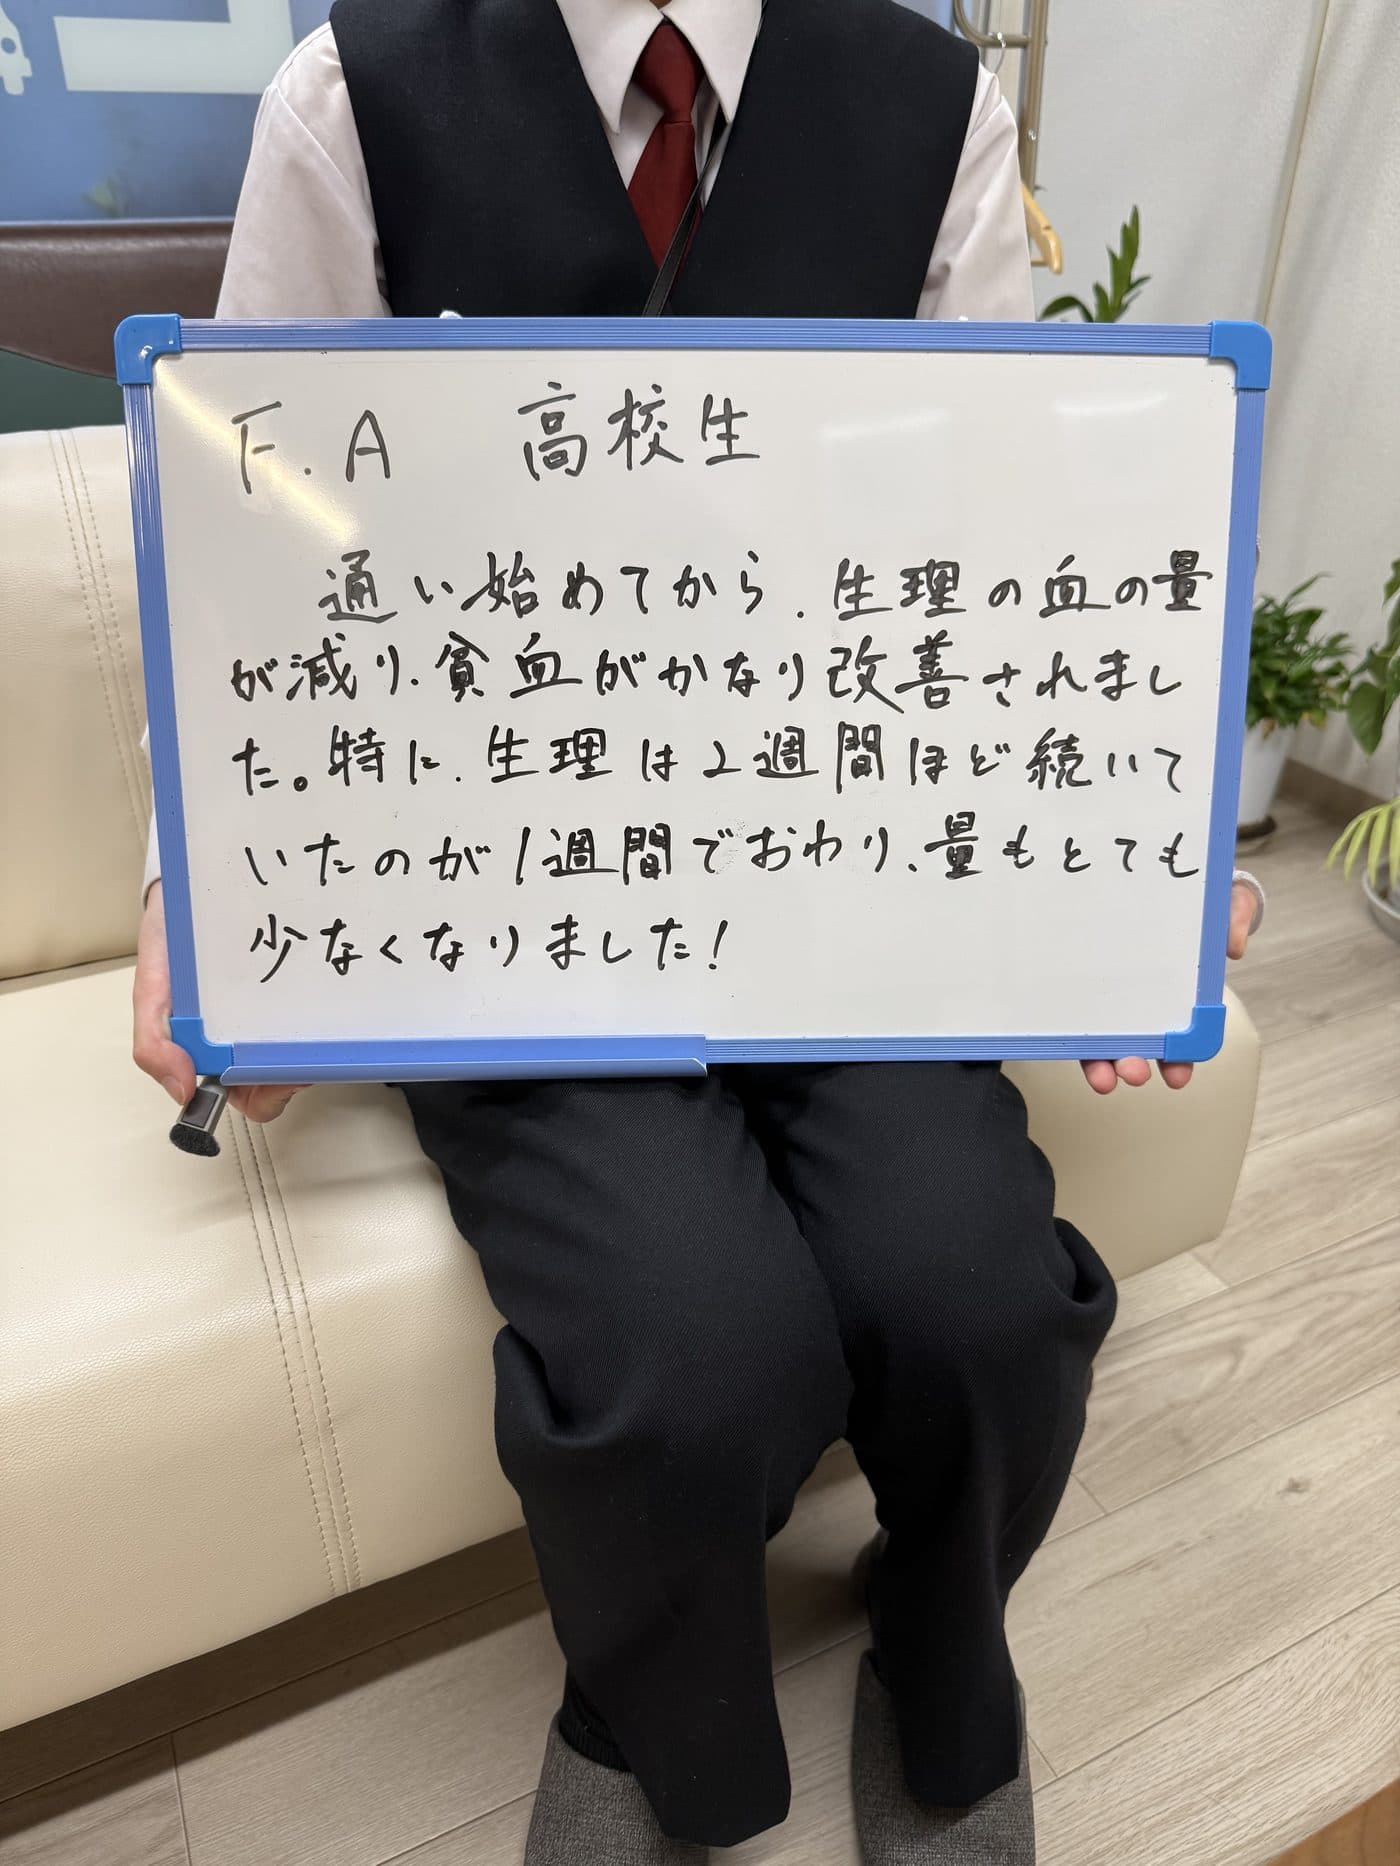 F.A 高校生
通い始めてから、生理の血の量
が減り、貧血がかなり改善されまし
た。特に、生理は2週間ほど続いて
いたのが1週間でおわり、量もとても
少なくなりました!